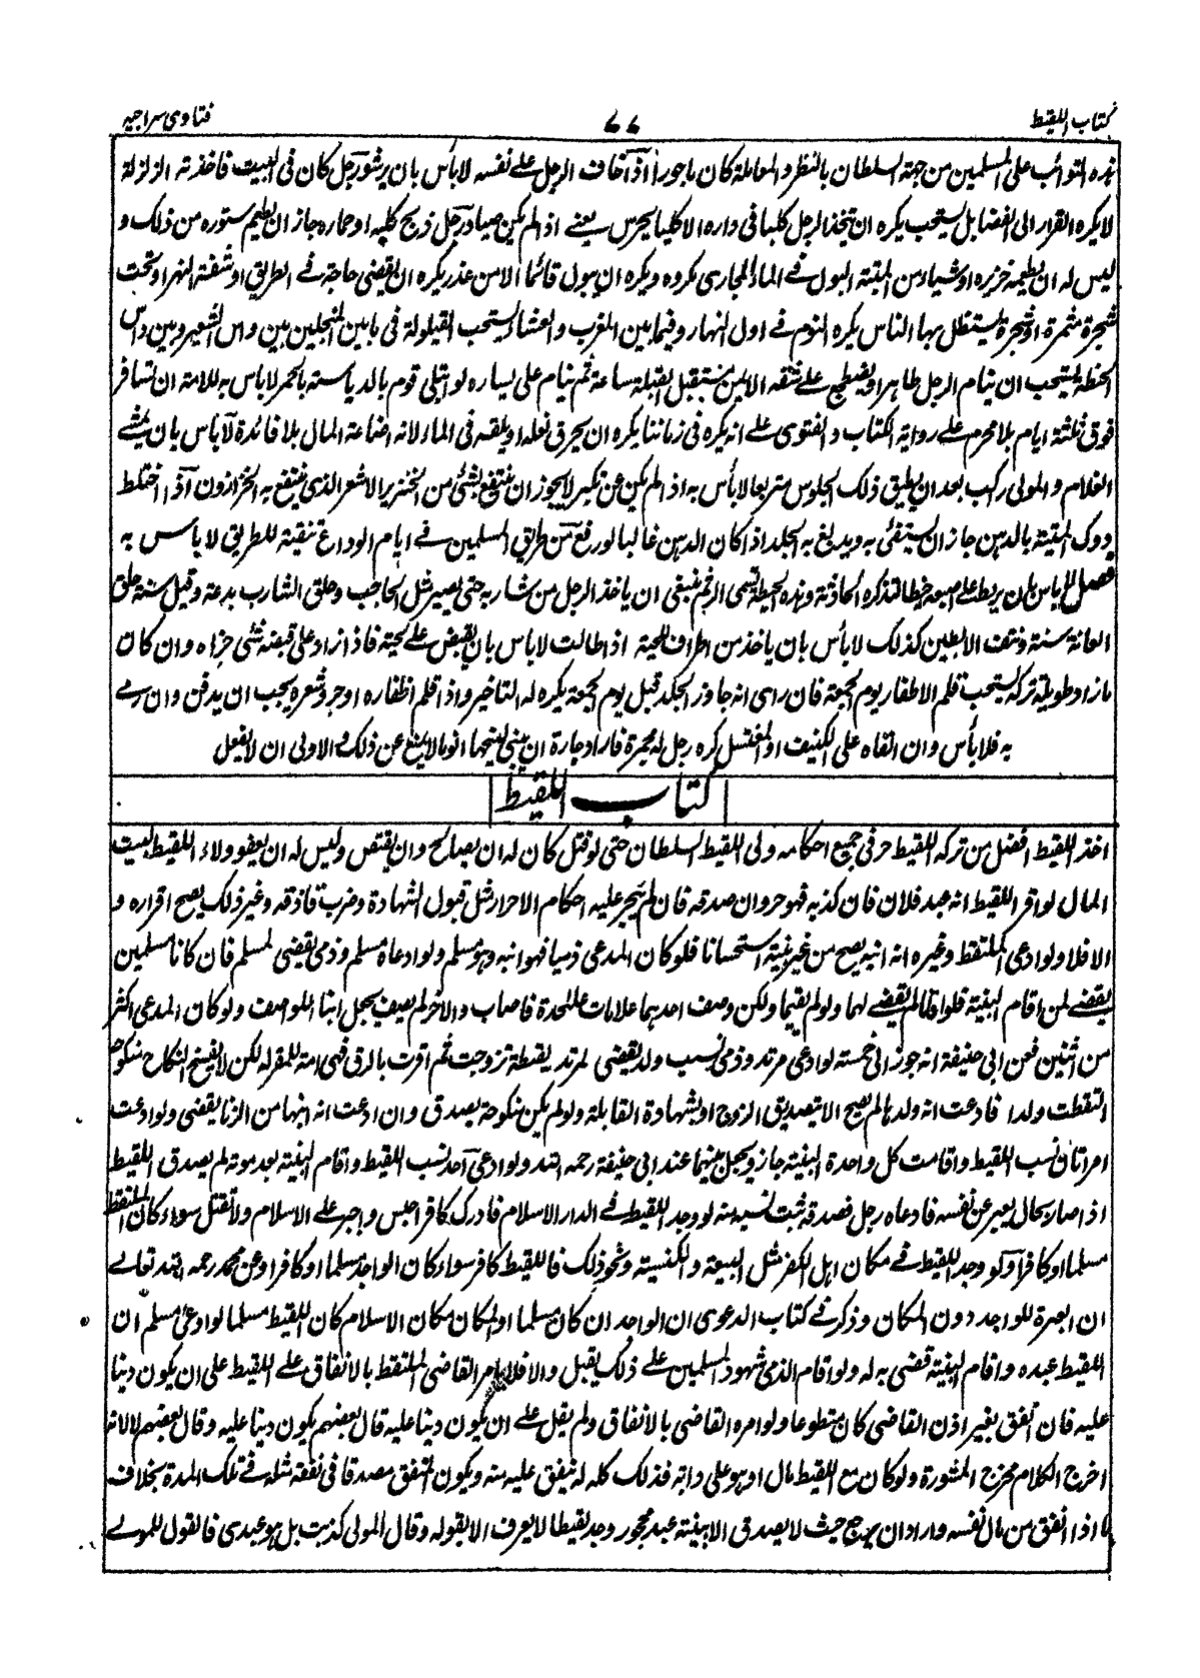 كتاب اللقيط ٧٧ فتاوى سراجيه
هذه النوائب على المسلمين من جهة السلطان بالنظر والمعاملة كان ماجورا اذا خاف الرجل على نفسه لا بأس بان يرشو رجل كان فى البيت فاخذته الزلزلة
لا يكره الفرار الى الفضا بل يستحب يكره ان يتخذ الرجل كلبا فى داره الا كلبا يحرس يعنى اذا لم يكن صيادا رجل ذبح كلبه او حماره جاز ان يطعم سنوره من ذلك و
ليس له ان يطعمه خنزيره او شيئا من الميتة البول فى الماء الجارى مكروه ويكره ان يبول قائما الا من عذر يكره ان يقضى حاجة فى الطريق او شفة النهر او تحت
شجرة مثمرة او شجرة يستظل بها الناس يكره النوم فى اول النهار وفيما بين المغرب والعشاء ويستحب القيلولة فى ما بين المنجلين بين داس الشعير وبين داس
الحنطة يستحب ان ينام الرجل طاهرا ويضطجع على شقه الايمن مستقبل القبلة ساعة ثم ينام على يساره لو ابتلى قوم بالدياسة بالحمر لا باس به للامة ان تسافر
فوق ثلثة ايام بلا محرم على رواية الكتاب والفتوى على انه يكره فى زماننا يكره ان يحرق نعله او يلقيه فى الماء لانه اضاعة المال بلا فائدة لا باس بان يمشى
الغلام والمولى راكب بعد ان يطيق ذلك الجلوس متربعا لا بأس به اذا لم يكن عن تكبر لا يجوز ان ينتفع بشئ من الخنزير الا شعر الذى ينتفع به الخرازون اذا اختلط
ودك الميتة بالدهن جاز ان يستضئ به ويدبغ به الجلد اذا كان الدهن غالبا لو رفع من طريق المسلمين فى ايام الوداع تنقية للطريق لا باس به
فصل لا باس بان يربط على اصبعه خيطا لتذكره الحاجة وهذه الخيطة تسمى الرتم ينبغى ان ياخذ الرجل من شاربه حتى يصير مثل الحاجب وحلق الشارب بدعة وقيل سنة حلق
العانة سنة ونتف الابطين كذلك لا بأس بان ياخذ من اطراف اللحية اذا طالت لا باس بان يقبض على لحيته فاذا زاد على قبضته شئ جزاه وان كان
ما زاد طويلة تركه يستحب قلم الاظفار يوم الجمعة فان راى انه جاوز الحد قبل يوم الجمعة يكره له التاخير واذا قلم اظفاره او جز شعره يجب ان يدفن وان رمى
به فلا بأس وان القاه على الكنيف او المغتسل كره رجل له حجرة فاراد جاره ان يبنى بجنبها اتونا لا يمنع عن ذلك والاولى ان لا يفعل
كتاب اللقيط
اخذ اللقيط افضل من تركه اللقيط حر فى جميع احكامه ولى اللقيط السلطان حتى لو قتل كان له ان يصالح وان يقتص وليس له ان يعفو ولاء اللقيط لبيت
المال لو اقر اللقيط انه عبد فلان فان كذبه فهو حر وان صدقه فان لم يجر عليه احكام الاحرار مثل قبول الشهادة وضرب قاذفه وغير ذلك يصح اقراره و
الا فلا ولو ادعى الملتقط وغيره انه ابنه يصح من غير بينة استحسانا فلو كان المدعى ذميا فهو ابنه وهو مسلم ولو ادعاه مسلم وذمى يقضى لمسلم فان كانا مسلمين
يقضى لمن اقام البينة فلو اقاما يقضى لهما ولو لم يقيما ولكن وصف احدهما علامات على الجسد فاصاب والاخر لم يصف يجعل ابنا للواصف ولو كان المدعى اكثر
من اثنين فعن ابى حنيفة انه جوز الى خمسة لو ادعى مرتد وذمى نسب ولد يقضى لمرتد لقيطة تزوجت ثم اقرت بالرق فهى امة للمقر له لكن لا يفسخ النكاح منكوحة
التقطت ولدا فادعت انه ولدها لم يصح الا بتصديق الزوج او بشهادة القابلة ولو لم يكن منكوحة يصدق وان ادعت انه ابنها من الزنا يقضى ولو ادعت
امرتان نسب اللقيط واقامت كل واحدة البينة جاز ويجعل بينهما عند ابى حنيفة رحمه الله ولو ادعى احد نسب اللقيط واقام البينة بعد موته لم يصدق اللقيط
اذا صار بحال يعبر عن نفسه فادعاه رجل فصدقه ثبت نسبه منه لو وجد اللقيط فى الدار الاسلام فادرك كافرا حبس واجبر على الاسلام ولا تقتل سواء كان الملتقط
مسلما او كافرا ولو وجد اللقيط فى مكان اهل الكفر مثل البيعة والكنيسة ونحو ذلك فاللقيط كافر سواء كان الواجد مسلما او كافرا وعن محمد رحمه الله تعالى
ان العبرة للواجد دون المكان وذكر فى كتاب الدعوى ان الواجد ان كان مسلما او المكان مكان الاسلام كان اللقيط مسلما لو ادعى مسلم ان
اللقيط عبده واقام البينة قضى به له ولو اقام الذمى شهود المسلمين على ذلك يقبل والا فلا يامر القاضى الملتقط بالانفاق على اللقيط على ان يكون دينا
عليه فان انفق بغير اذن القاضى كان متطوعا ولو امره القاضى بالانفاق ولم يقل على ان يكون دينا عليه قال بعضهم يكون دينا عليه وقال بعضهم لا لانه
اخرج الكلام مخرج المشورة ولو كان مع اللقيط مال او هو على دابة فذلك كله له ينفق عليه منه ويكون المنفق مصدقا فى نفقة مثله فى تلك المدة بخلاف
ما اذا انفق من مال نفسه واراد ان يرجع حيث لا يصدق الا ببينة عبد محجور وجد لقيطا لا يعرف الا بقوله وقال المولى كذبت بل هو عبدى فالقول للمولى